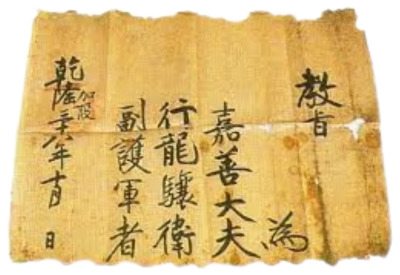 教旨
為
嘉善大夫
行龍驤衛
副護軍者
加設
乾隆三十八年十月 日